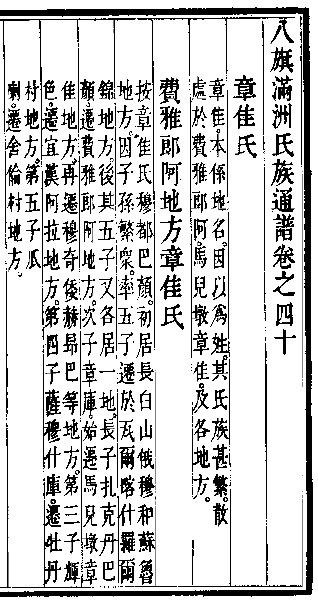 八旗滿洲氏族通譜卷之四十
章佳氏
章佳。本係地名。因以爲姓。其氏族甚繁。散
處於費雅郎阿。馬兒墩章佳。及各地方。
費雅郎阿地方章佳氏
按章佳氏穆都巴顏。初居長白山俄穆和蘇魯
地方。因子孫繁衆。率五子遷於瓦爾喀什羅爾
錦地方。後其五子又各居一地。長子扎克丹巴
顏。遷費雅郎阿地方。次子章庫。始遷馬兒墩章
佳地方。再遷穆奇倭赫昂巴等地方。第三子輝
色。遷宜漢阿拉地方。第四子薩穆什庫。遷牡丹
村地方。第五子瓜
喇。遷舍倫村地方。